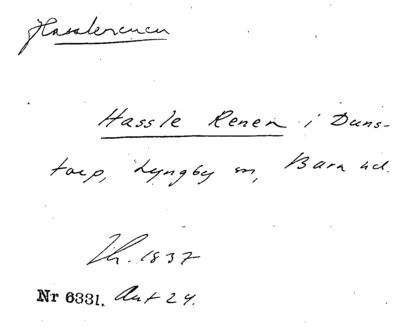 Hasslerenen
Hassle Renen i Duns-
torp, Lyngby sn, Bara hd.
Th. 1837
Nr 6331. Ant 24.